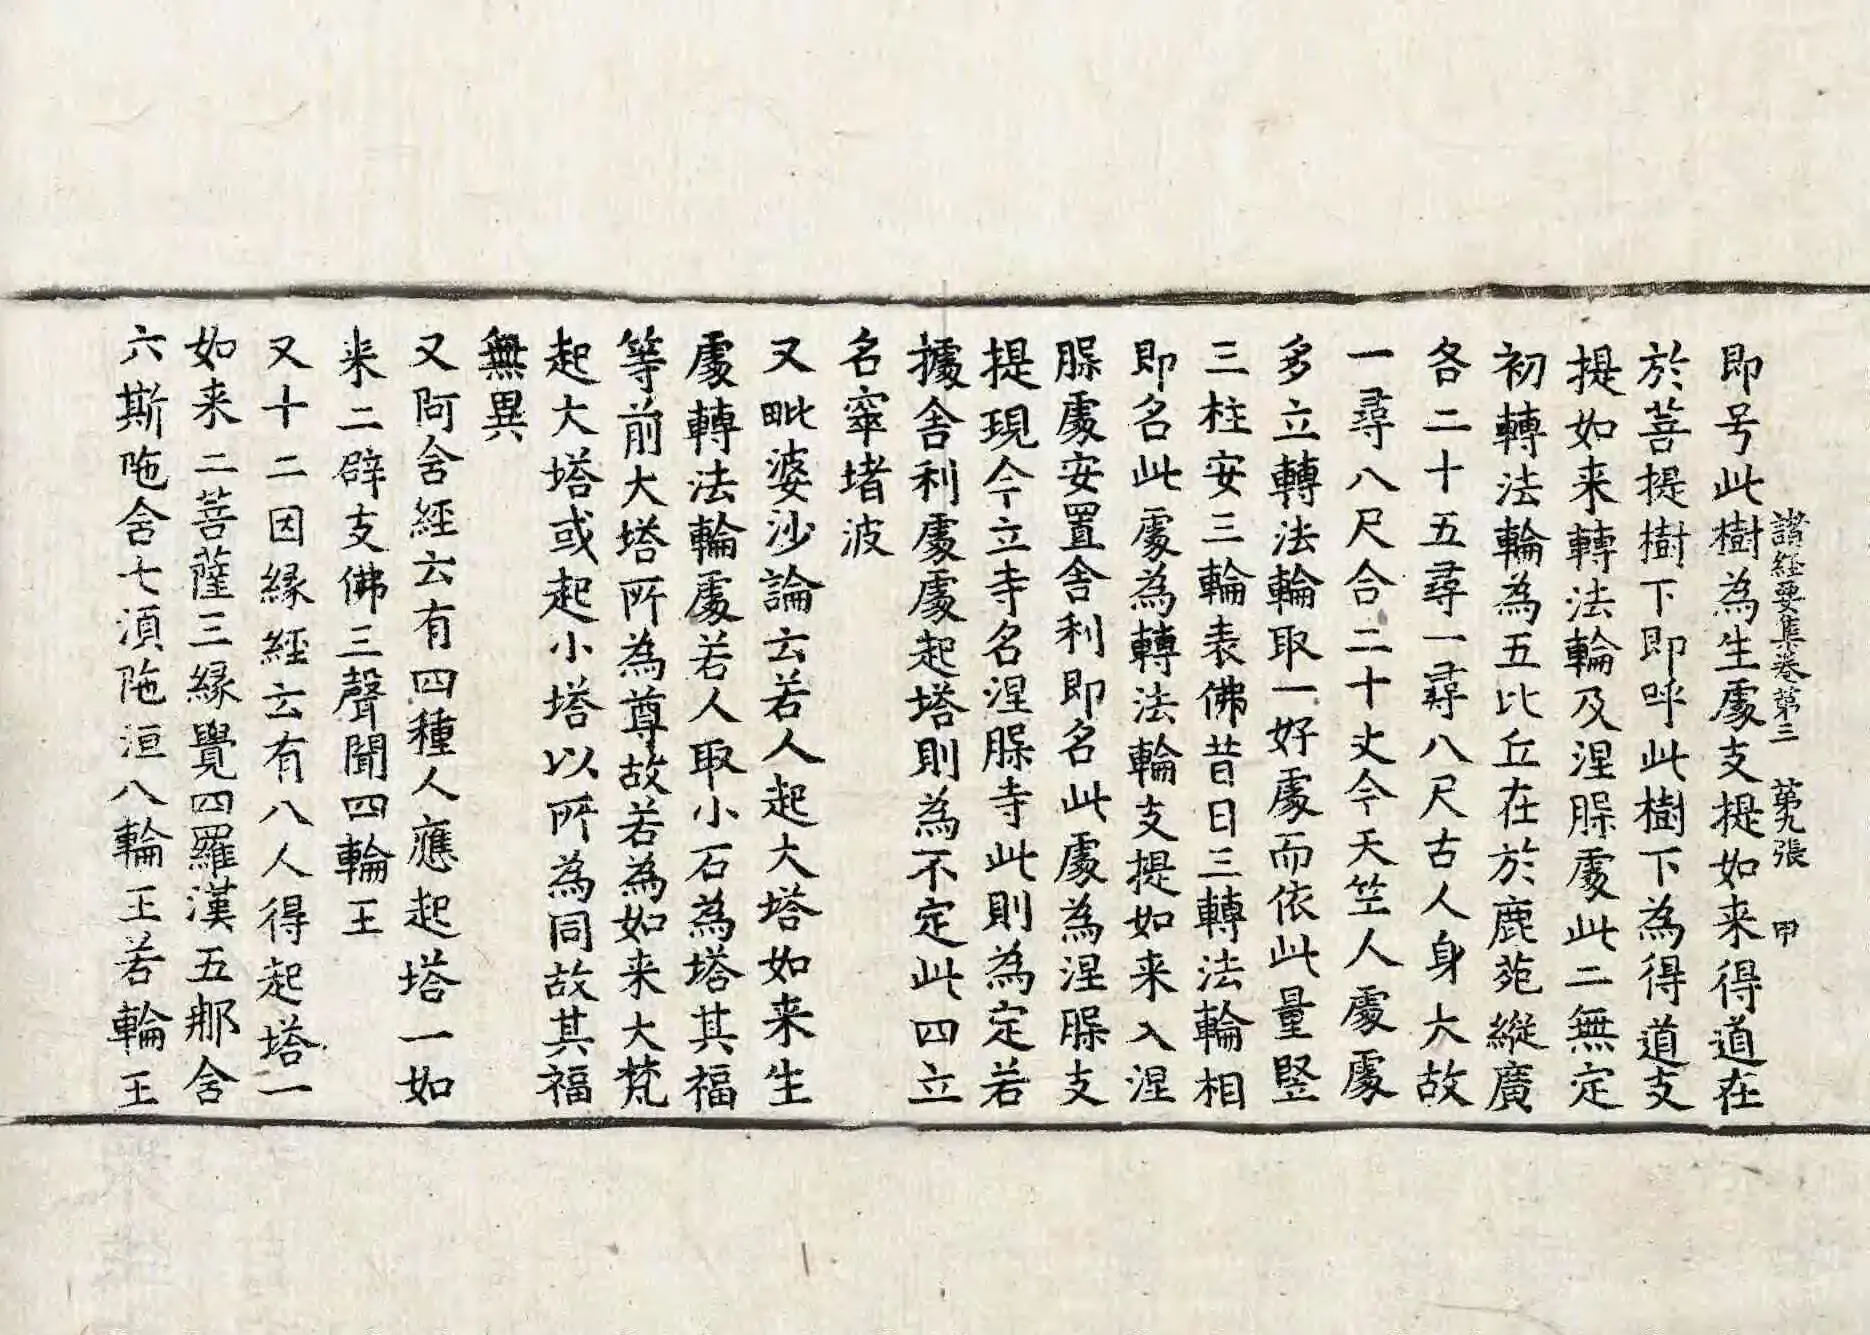 諸経要集卷第三 第九張 甲
即号此樹為生處支提如来得道在
於菩提樹下即呼此樹下為得道支
提如来轉法輪及涅脲處此二無定
初轉法輪為五比丘在於鹿苑縱廣
各二十五尋一尋八尺古人身大故
一尋八尺合二十丈今天竺人處處
多立轉法輪取一好處而依此量竪
三柱安三輪表佛昔日三轉法輪相
即名此處為轉法輪支提如来入涅
脲處安置舎利即名此處為涅脲支
提現今立寺名涅脲寺此則為定若
據舎利處處起塔則為不定此四立
名窣堵波
又毗婆沙論云若人起大塔如来生
處轉法輪處若人取小石為塔其福
等前大塔所為尊故若為如来大梵
起大塔或起小塔以所為同故其福
無異
又阿含經云有四種人應起塔一如
来二辟支佛三聲聞四輪王
又十二因縁經云有八人得起塔一
如来二菩薩三縁覺四羅漢五那含
六斯陁含七湏陁洹八輪王若輪王